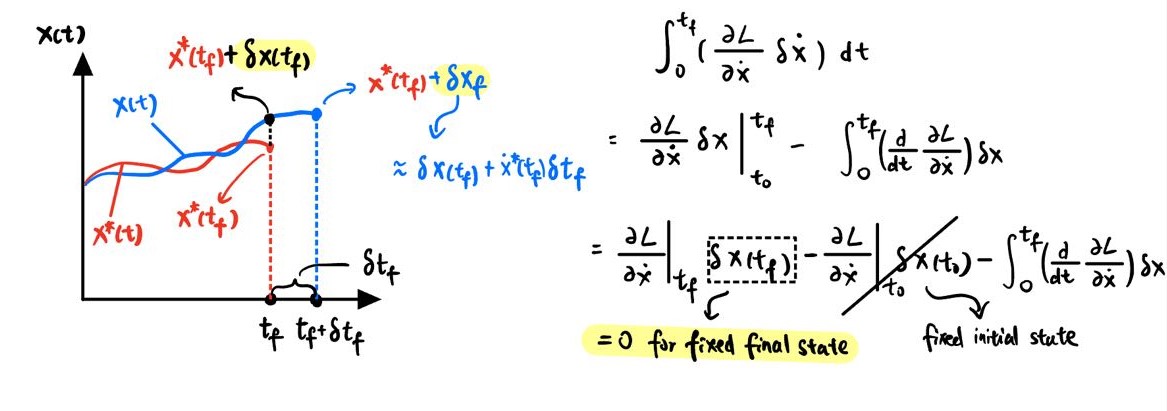 x(t)
x*(t_f) + δx(t_f)
x*(t_f) + δx_f
x(t)
≈ δx(t_f) + ẋ*(t_f)δt_f
x*(t_f)
x*(t)
δt_f
t_f t_f+δt_f
∫₀^{t_f} ( ∂L/∂ẋ δẋ ) dt
= ∂L/∂ẋ δx |_{t₀}^{t_f} − ∫₀^{t_f} ( d/dt ∂L/∂ẋ ) δx
= ∂L/∂ẋ |_{t_f} δx(t_f) − ∂L/∂ẋ |_{t₀} δx(t₀) − ∫₀^{t_f} ( d/dt ∂L/∂ẋ ) δx
= 0 for fixed final state
fixed initial state